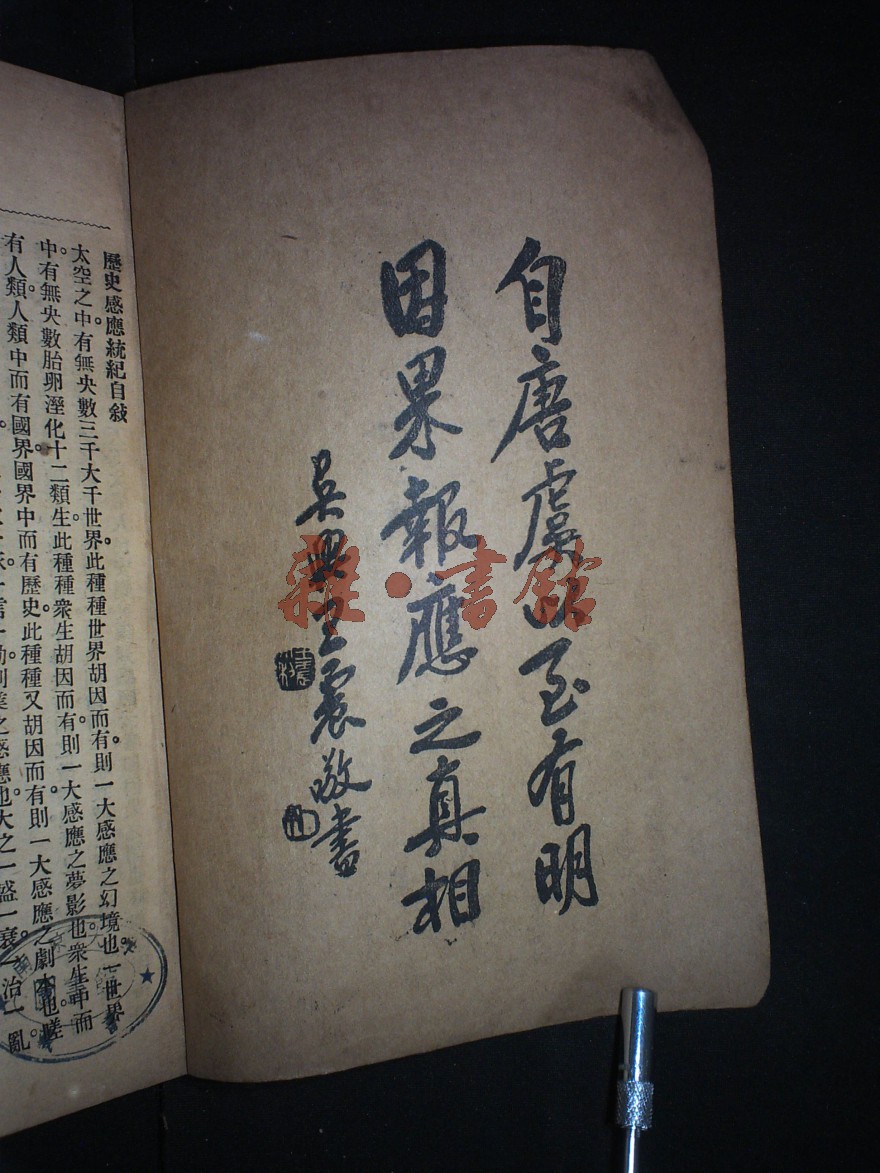 自唐虞以至有明
因果報應之真相
吳興王震敬書
雜·書館
歷史感應統紀自敍
太空之中。有無央數三千大千世界。此種種世界胡因而有。則一大感應之幻境也。一世界
中。有無央數胎卵溼化十二類生。此種種衆生胡因而有。則一大感應之夢影也。衆生中而
有人類。人類中而有國界。國界中而有歷史。此種種又胡因而有。則一大感應之劇本也。嗟
之感應也。大之一盛一衰。一治一亂。